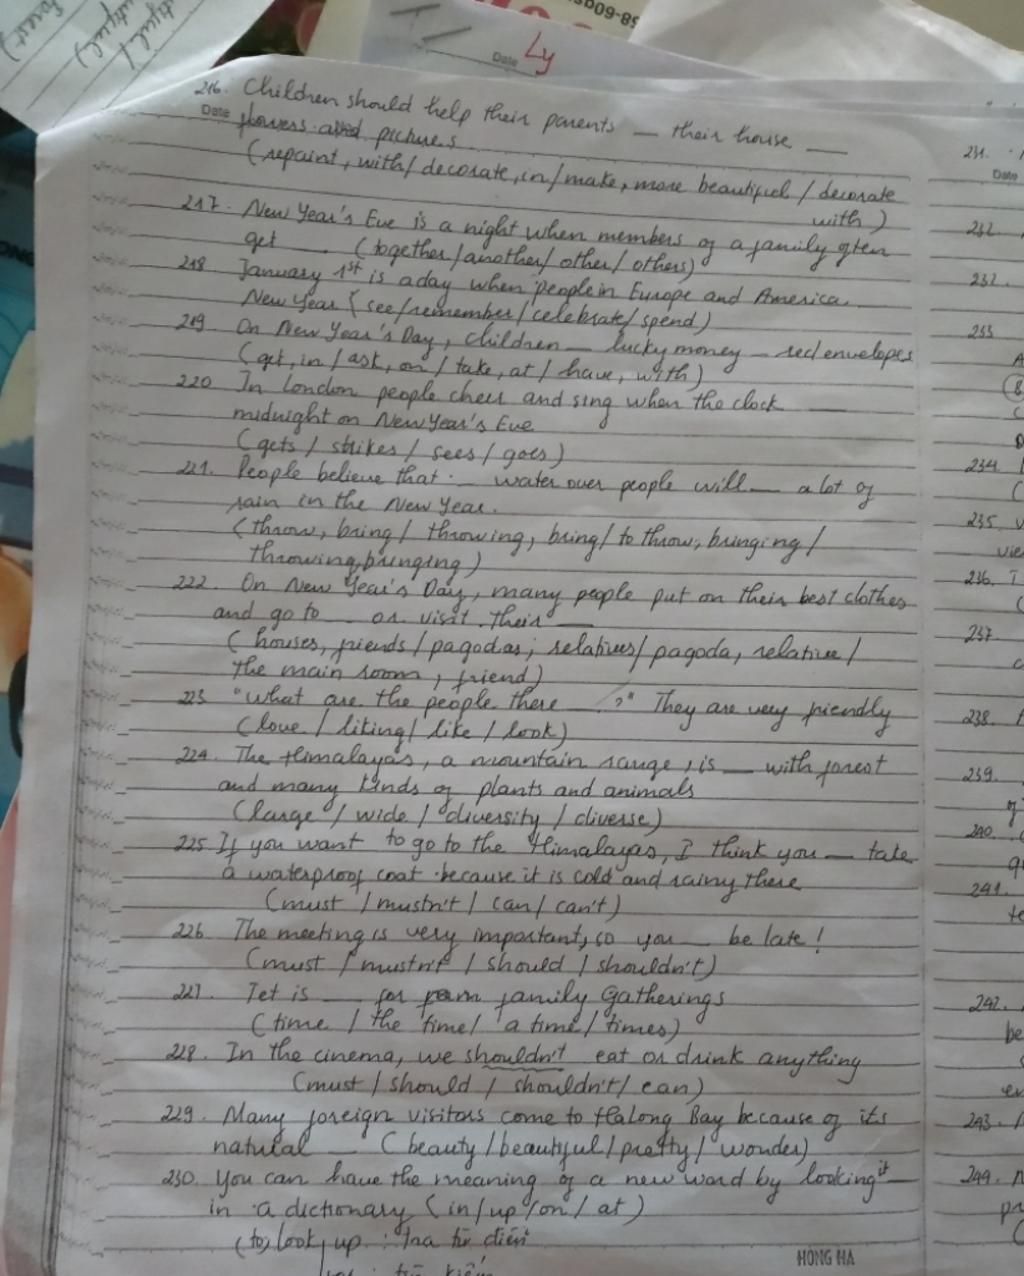 Date Ly
216. Children should help their parents __ their house __
Date flowers and pictures
(repaint, with/ decorate, in/make, more beautiful / decorate
with)
217. New Year's Eve is a night when members of a family often
get __ (together/another/other/others)
218 January 1st is a day when people in Europe and America
New Year (see/remember/celebrate/spend)
219 On New Year's Day, children __ lucky money __ red envelopes
(get, in / ask, on / take, at / have, with)
220 In London people cheer and sing when the clock __
midnight on New Year's Eve
(gets / strikes / sees / goes)
221. People believe that __ water over people will __ a lot of
rain in the New Year.
(throw, bring/ throwing, bring/ to throw, bringing /
throwing, bringing)
222. On New Year's Day, many people put on their best clothes
and go to __ or visit their __
(houses, friends / pagodas, relatives/ pagoda, relative /
the main room, friend)
223 "What are the people there __?" They are very friendly
(love / liking/ like / look)
224. The Himalayas, a mountain range, is __ with forest
and many kinds of plants and animals
(large / wide / diversity / diverse)
225 If you want to go to the Himalayas, I think you __ take
a waterproof coat because it is cold and rainy there
(must / mustn't / can / can't)
226 The meeting is very important, so you __ be late!
(must / mustn't / should / shouldn't)
227. Tet is __ for family Gatherings
(time / the time / a time / times)
228. In the cinema, we shouldn't eat or drink anything
(must / should / shouldn't / can)
229. Many foreign visitors come to Ha Long Bay because of its
natural __ (beauty / beautiful / pretty / wonder)
230. You can have the meaning of a new word by looking it __
in a dictionary (in / up / on / at)
(to) look up : tra từ điển
HONG HA
231.
Date
232.
232.
233
234
235.
236.
237
238.
239.
240.
241.
242.
243.
244.